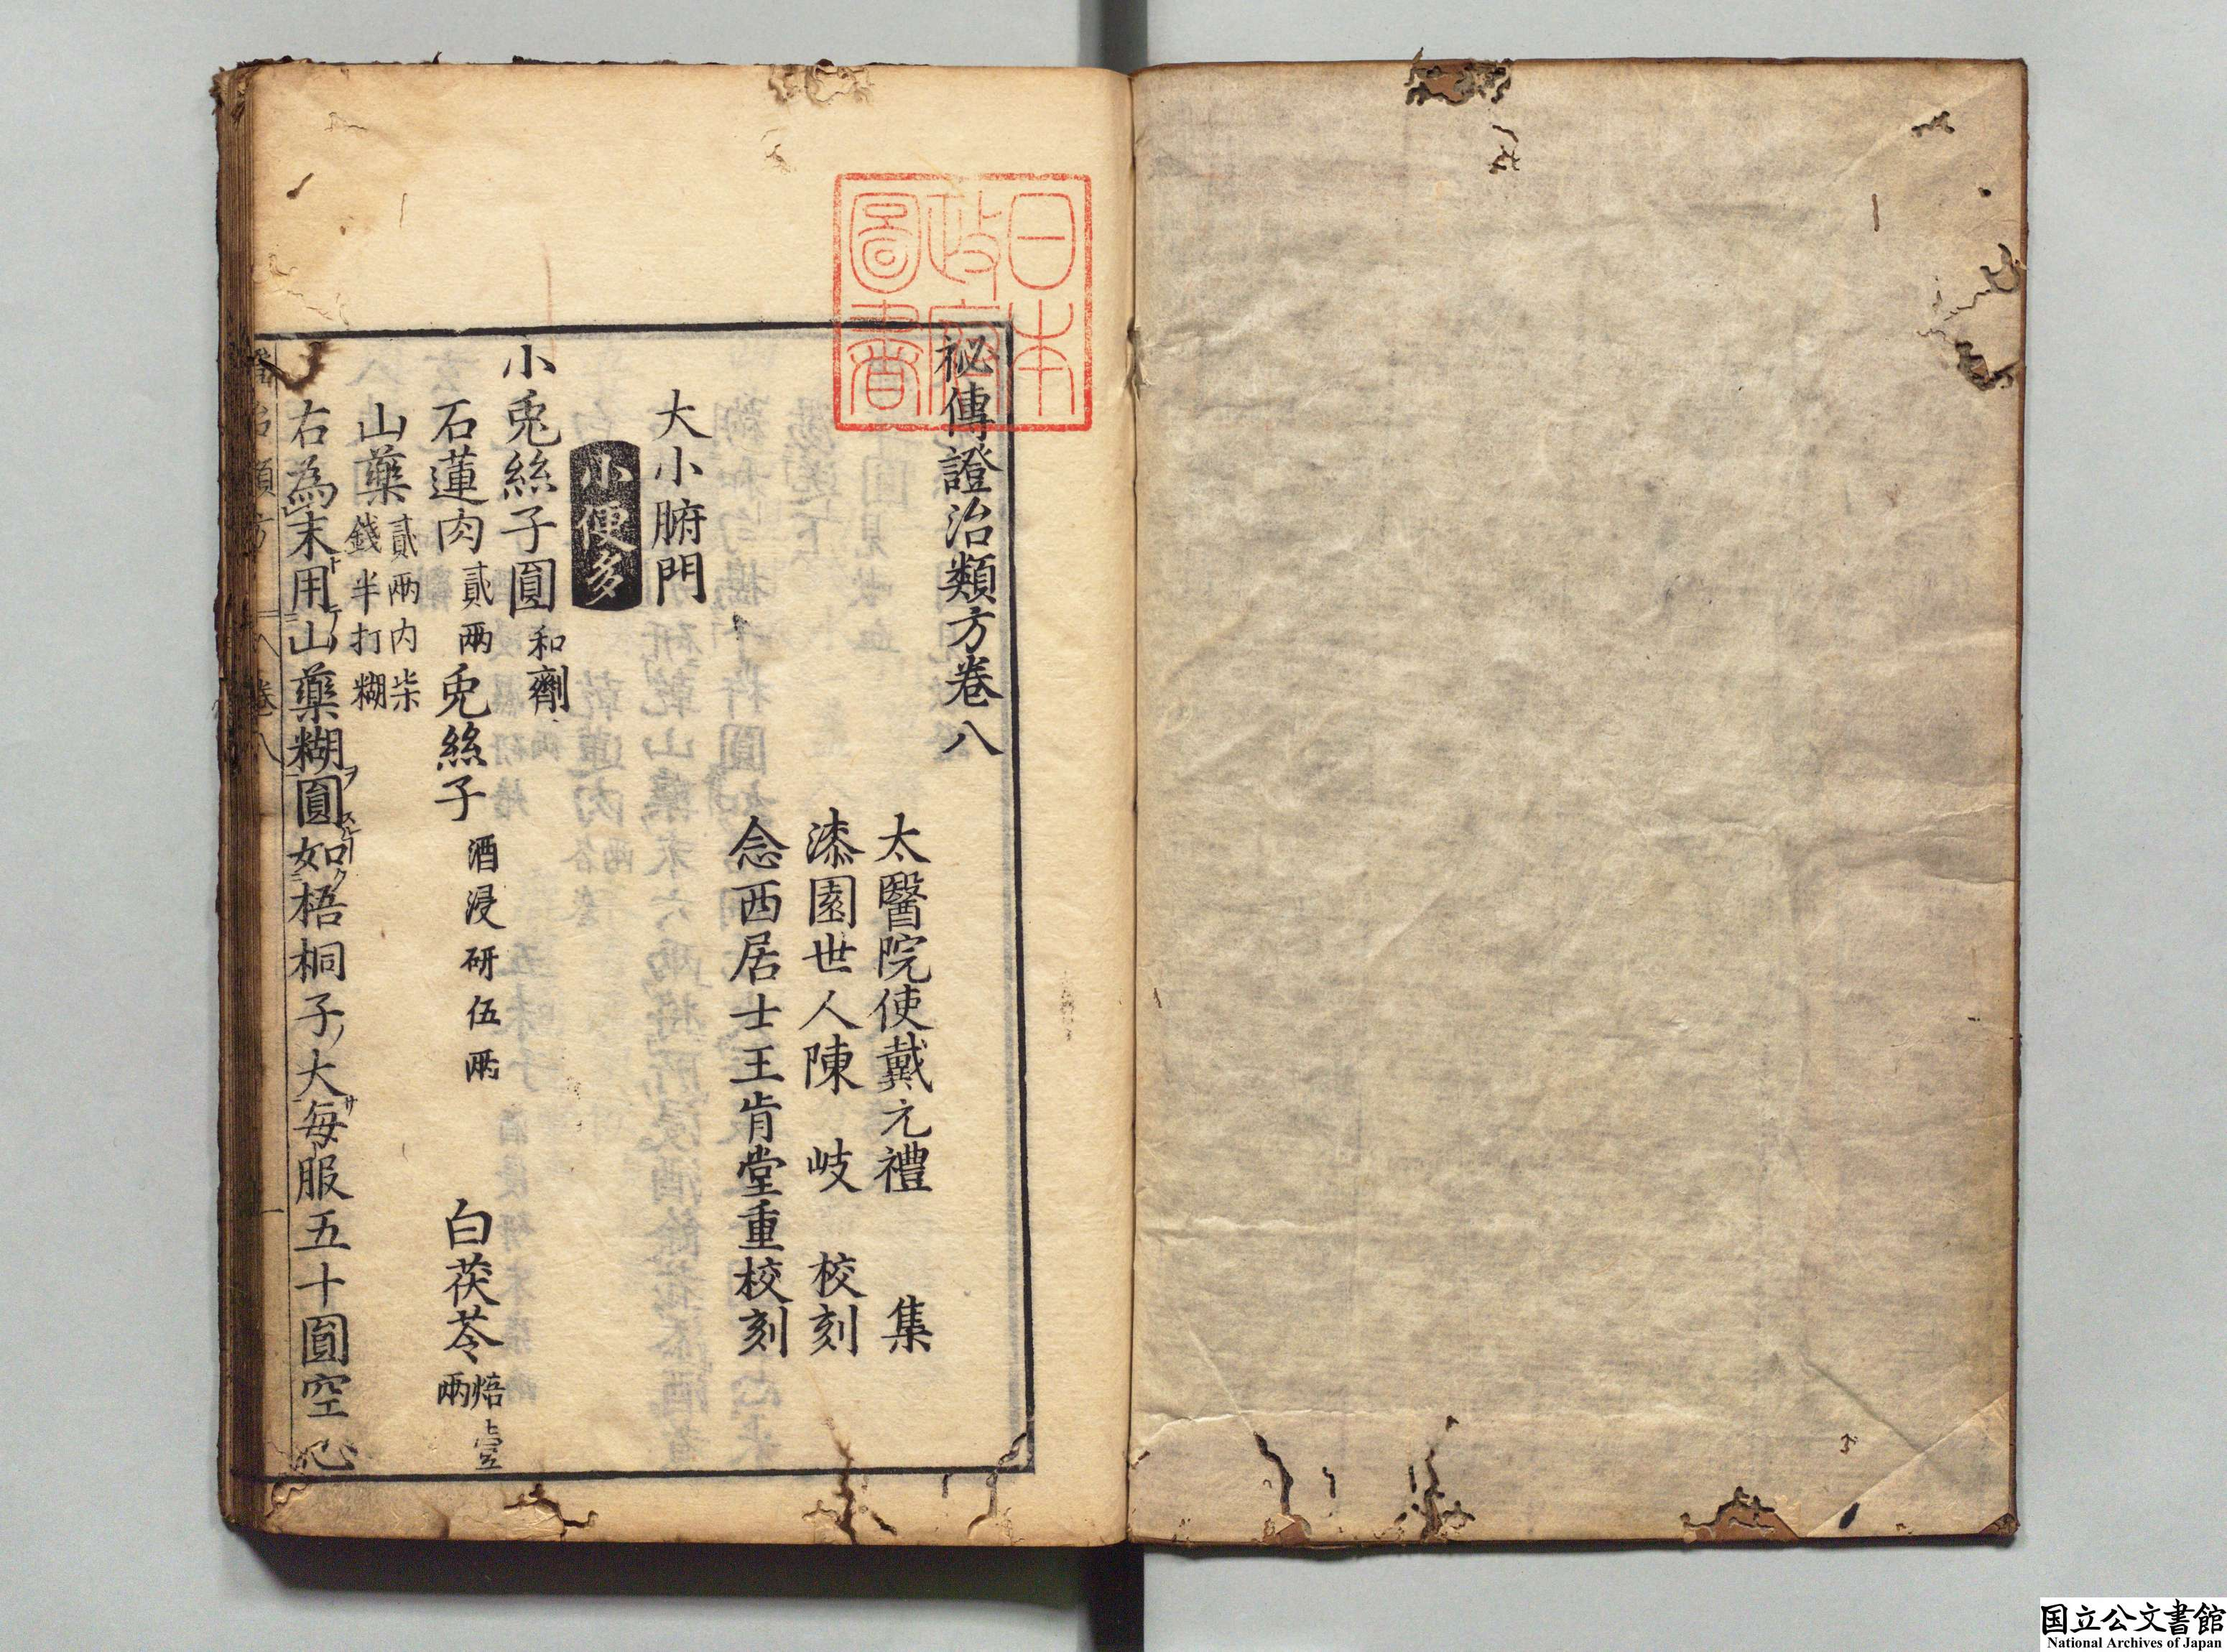 日本
政府
圖書
祕傳證治類方卷八
太醫院使戴元禮 集
漆園世人陳 岐 校刻
念西居士王肯堂重校刻
大小腑門
小便多
小兎絲子圓 和劑
石蓮肉 貳兩 兎絲子 酒浸研伍兩 白茯苓 焙壹兩
山藥 貳兩内柒錢半打糊
右為末用山藥糊圓如梧桐子大每服五十圓空心
国立公文書館
National Archives of Japan